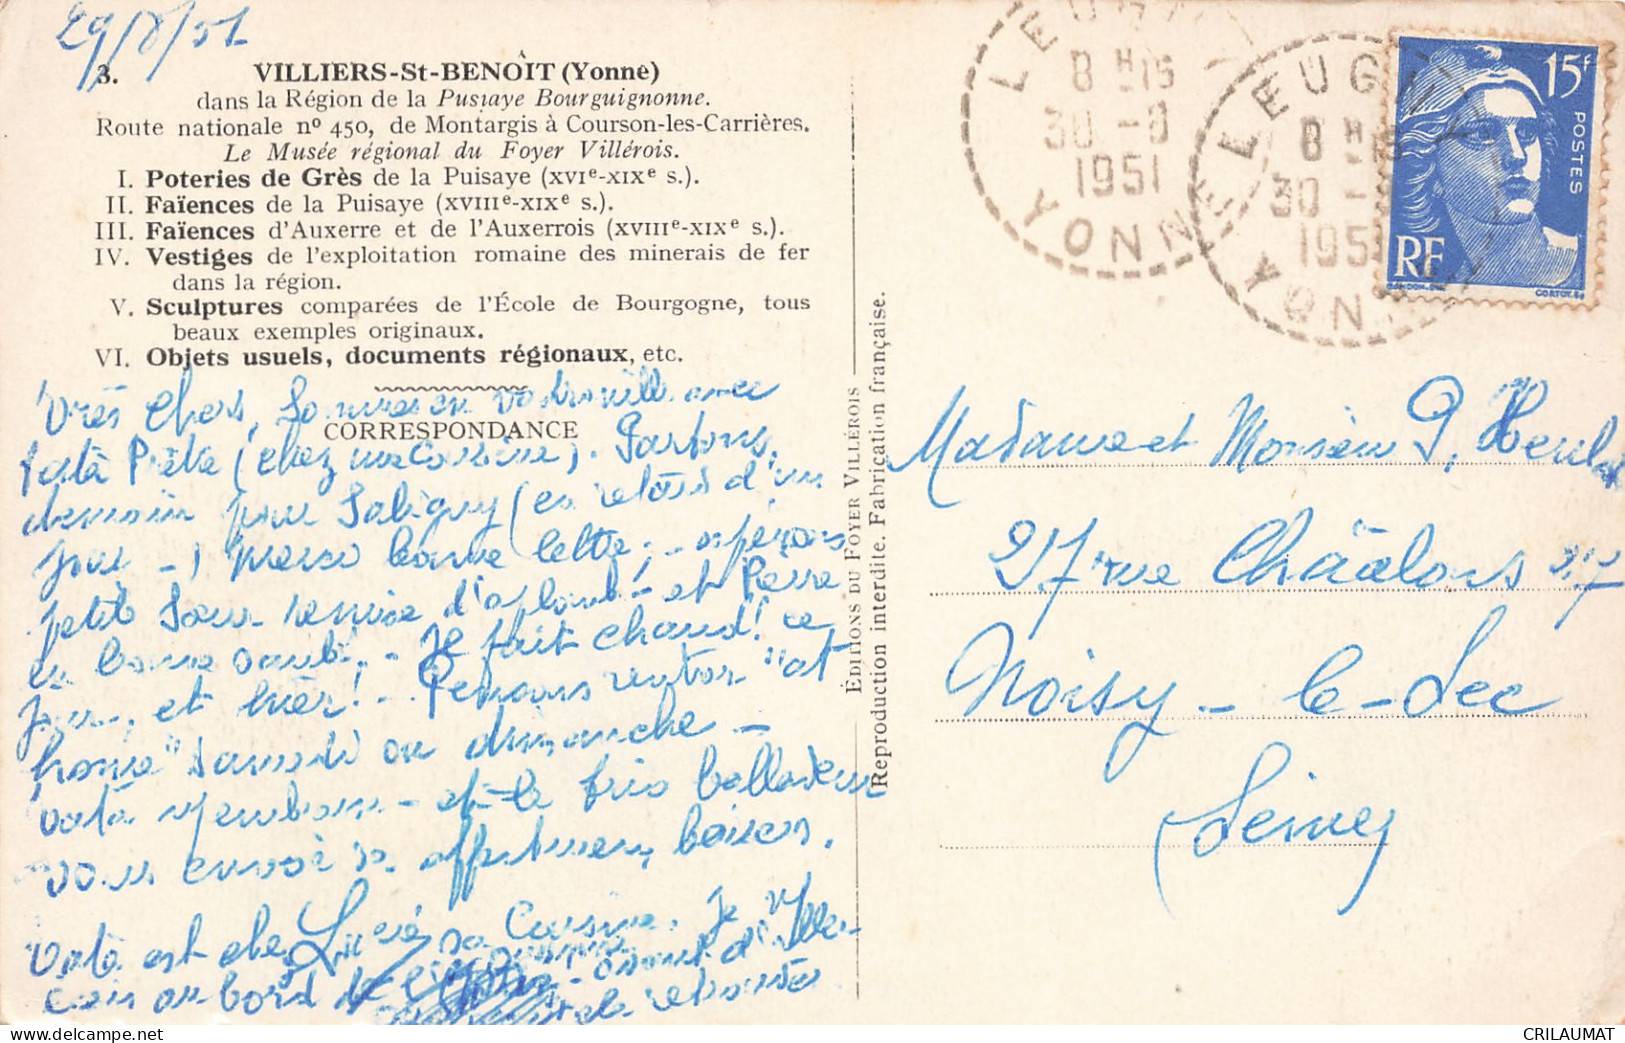 29/8/51
3. VILLIERS-St-BENOÎT (Yonne)
dans la Région de la Puisaye Bourguignonne.
Route nationale nº 450, de Montargis à Courson-les-Carrières.
Le Musée régional du Foyer Villérois.
I. Poteries de Grès de la Puisaye (XVIe-XIXe s.).
II. Faïences de la Puisaye (XVIIIe-XIXe s.).
III. Faïences d'Auxerre et de l'Auxerrois (XVIIIe-XIXe s.).
IV. Vestiges de l'exploitation romaine des minerais de fer
dans la région.
V. Sculptures comparées de l'École de Bourgogne, tous
beaux exemples originaux.
VI. Objets usuels, documents régionaux, etc.
Très chers, Sommes en vadrouille avec
CORRESPONDANCE
(chez ma Cousine). Partons
demain pour Saligny (es retour d'un
jour -) Merci bonne lettre, - espérons
petite Sœur remise d'aplomb - et Pierre
en bonne santé. - Il fait chaud! ce
jour, et hier! - Pensons rentrer "at
home" samedi ou dimanche -
- et le trio balladeur
vous envoie ses affectueux baisers.
est chez sa Cousine. Je
au bord de
LEUGNY
8 H 15
30 -8
1951
YONNE
LEUGNY
8 H 15
30 -
1951
YONNE
15F
POSTES
RF
GANDON
CORTOT
ÉDITIONS DU FOYER VILLÉROIS
Reproduction interdite. Fabrication française.
Madame et Monsieur P.
27 rue Châalons 27
Noisy-le-Sec
(Seine)
CRILAUMAT